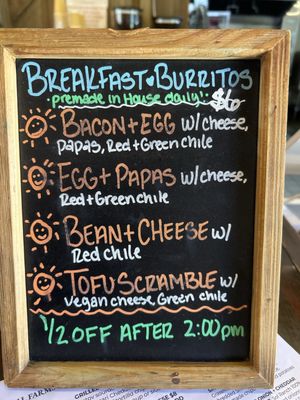 BREAKFAST BURRITOS
premade in House daily! $6
BACON+EGG w/ cheese,
papas, Red+Green chile
EGG+PAPAS w/ cheese,
Red+Green chile
BEAN+CHEESE w/
Red chile
TOFU SCRAMBLE w/
vegan cheese, Green chile
1/2 OFF AFTER 2:00pm